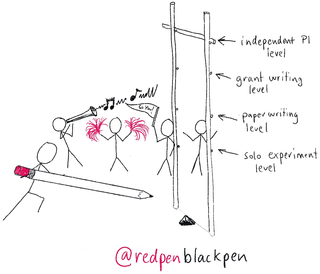 Go You!
independent PI
level
grant writing
level
paper writing
level
solo experiment
level
@redpenblackpen